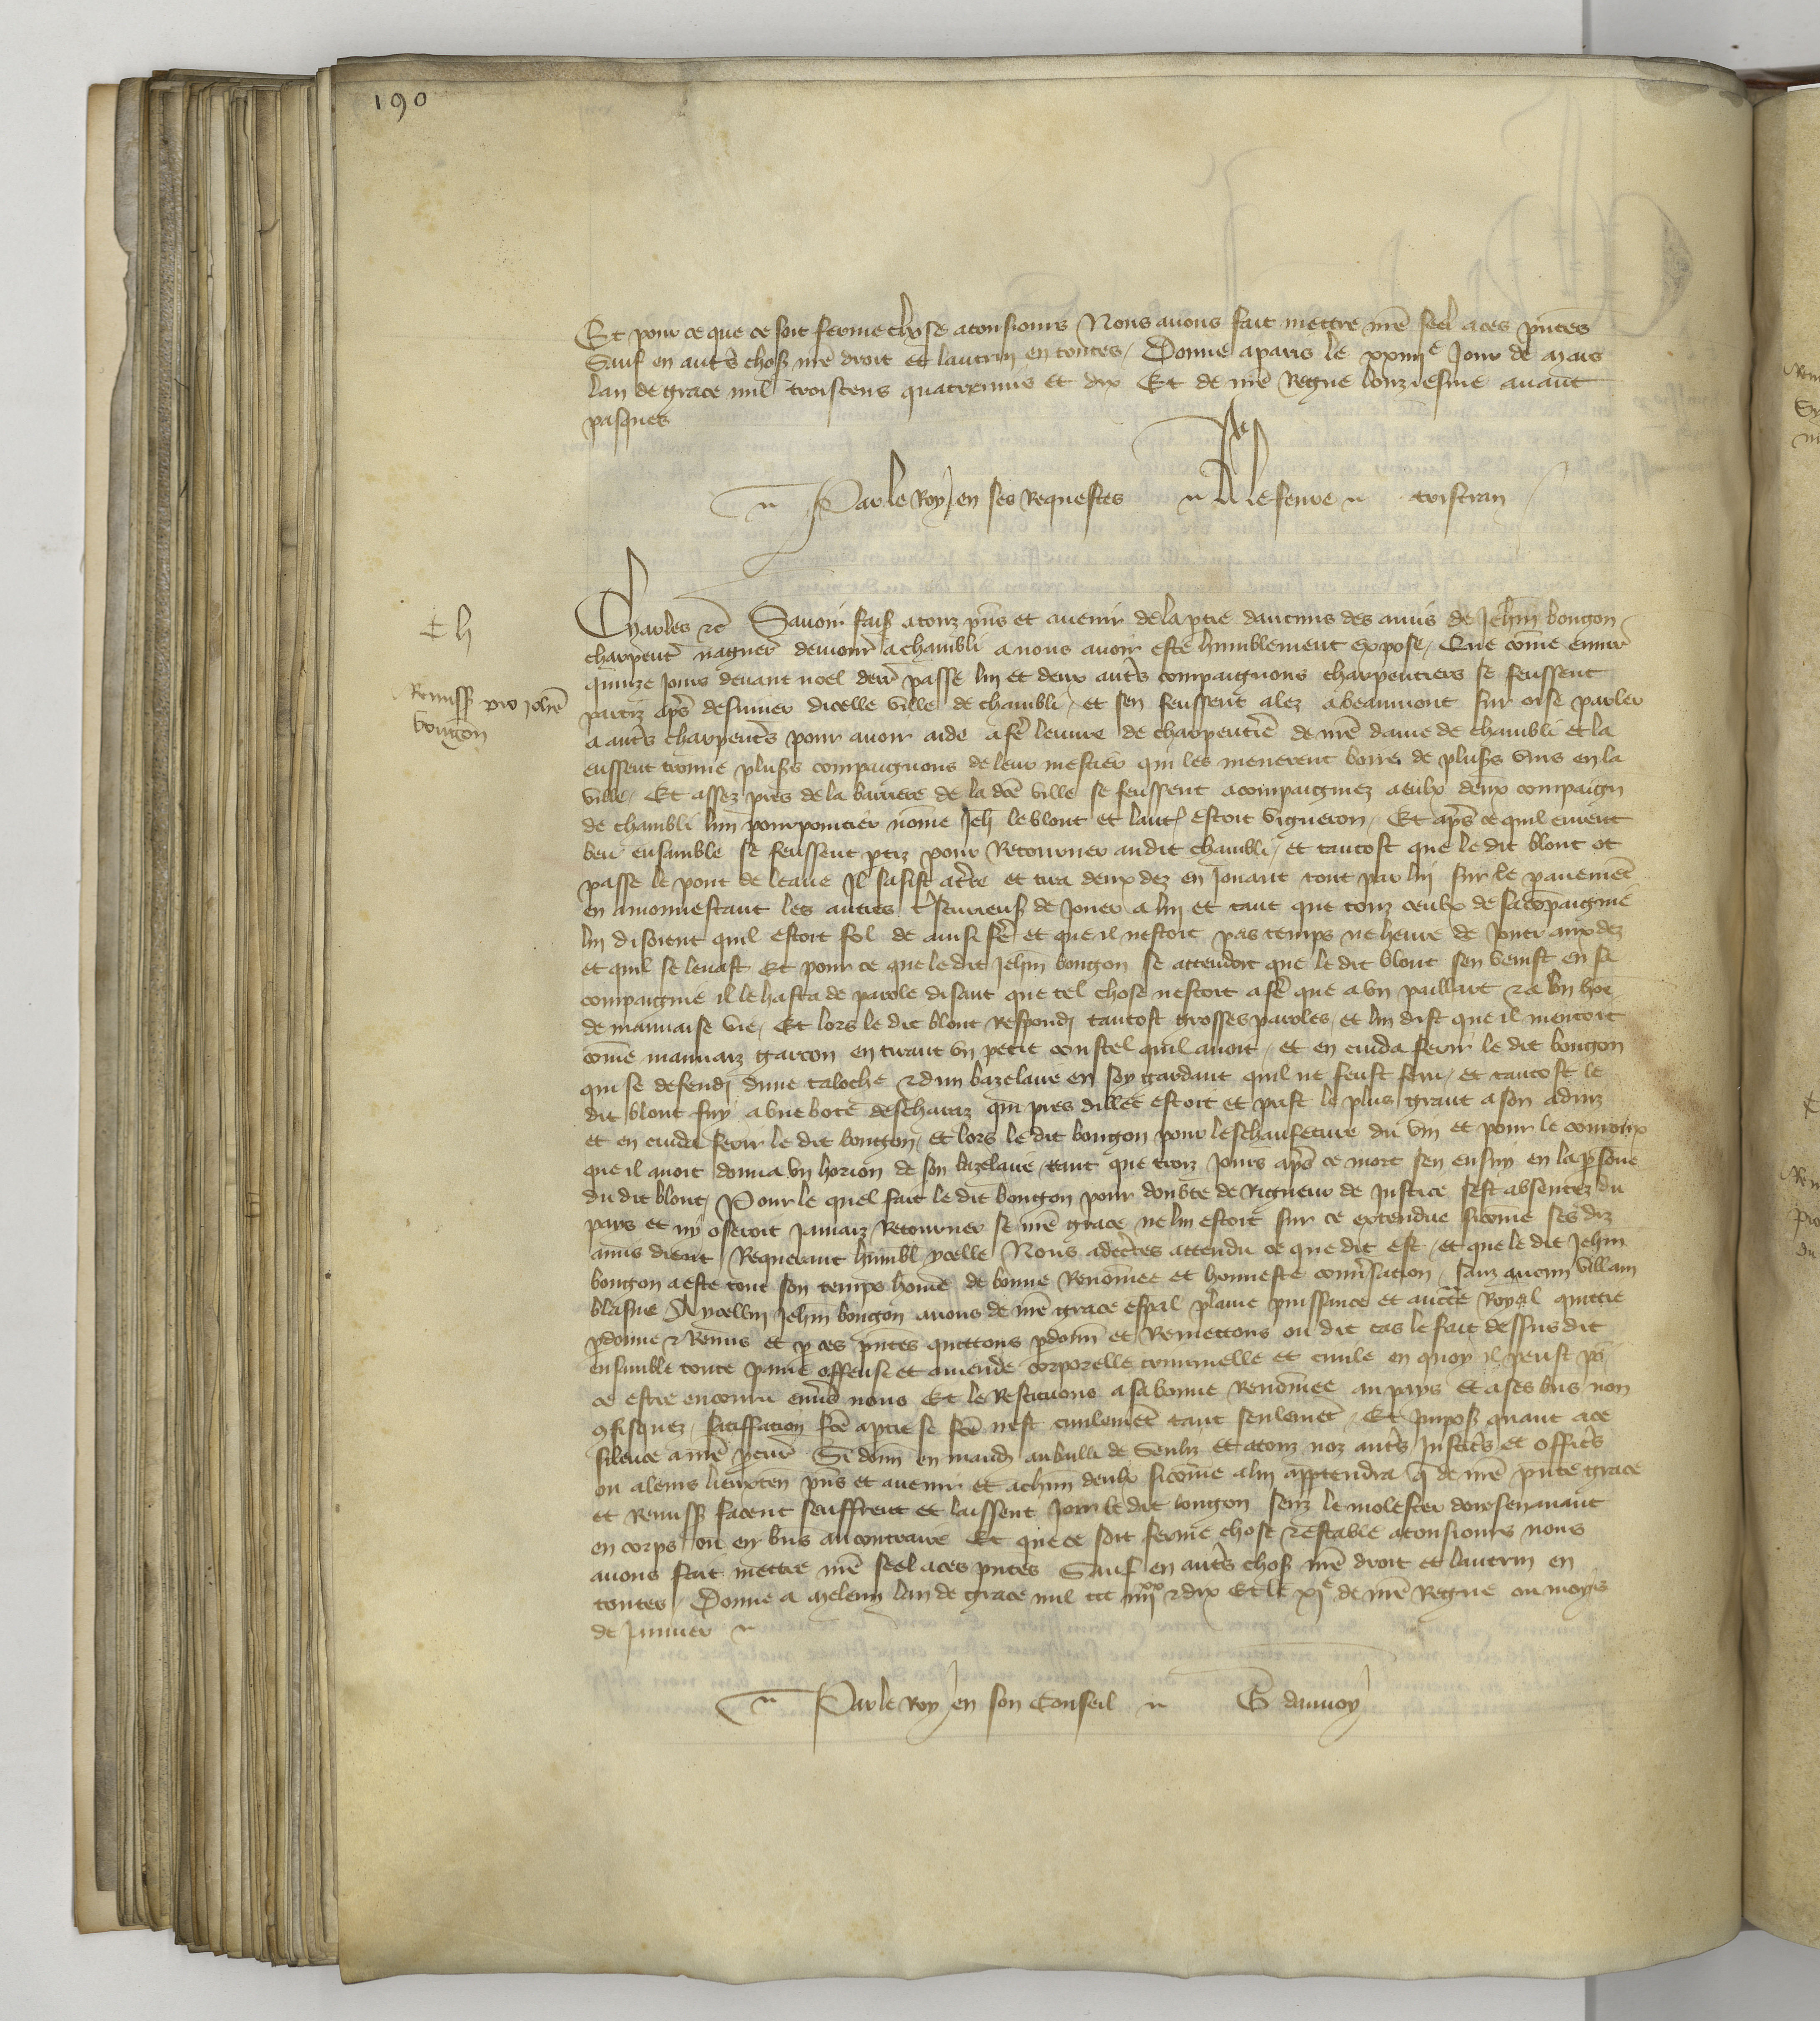 190
Et pour ce que ce soit ferme chose a tousiours Nous auons fait mettre nr̃e seel a ces p̃ntes
Sauf en autr̃s choses nr̃e droit et lautruy en toutes / Donne a paris le xxiiiie Jour de mars
lan de grace mil troiscens quatreuins et dix Et de nr̃e Regne lonziesme auant
pasques
Par le Roy en ses Requestes lefeure tristran
Charles &c̃ Sauoir faiss̃ a touz p̃ns et auenir de la p̃tie daucuns des amis de Jeh̃n bougon
charpent̃ nagueres demour̃ a chambli a nous auoir este humblement expose / Que com̃e enuir̃
quinze Jours deuant noel derr̃ passe luy et deux autr̃s compaignons charpentiers se feussent
partiz ap̃s desiuner dicelle ville de chambli / et sen feussent alez a beaumont sur oise parler
a autr̃s charpent̃s pour auoir aide a fẽ leuure de charpenterie de nr̃e dame de chambli et la
eussent trouue pluss̃s compaignons de leur mestier qui les menerent boire de pluss̃s vins en la
ville / Et assez pres de la barriere de la dc̃e ville se feussent acompaignez a eulx deux compaign̄
de chambli lun pourpointier nom̃e Jeh̃ leblont et laut̃ estoit vigneron / Et ap̃s ce quil eurent
beu ensamble se feussent p̃tiz pour Retourner audit chambli / et tantost que le dit blont ot
passe le pont de leaue Il sasist a tr̃e et tira deux dez en Jouant tout par luy sur le pauemẽt
en amonnestant les autres de Jouer a luy et tant que touz ceulx de sa cõpaignie
luy disoient quil estoit fol de ainsi fẽ et que il nestoit pas temps ne heure de Jouer aux dez
et quil se leuast Et pour ce que le dit Jeh̃n bougon se attendoit que le dit blont sen venist en sa
compaignie il le hasta de parole disant que tel chose nestoit a fẽ que a vn paillart & a vn hõe
de mauuaise vie / Et lors le dit blont Respondi tantost grosses paroles / et luy dist que il mentoit
com̃e mauuaiz garcon en tirant vn petit coustel quil auoit / et en cuida ferir le dit bougon
qui se defendi dune taloche & dun bazelaire en soy gardant quil ne feust feru / et tantost le
dit blont fuy a vne bote descharaz qui pres dillec estoit et prist le plus grant a son aduiz
et en cuida ferir le dit bougon / et lors le dit bougon pour leschaufeture du vin et pour le courroux
que il auoit donna vn horion de son bazelaire / tant que troiz Jours ap̃s ce mort sen ensuy en la p̃sonne
du dit blont / Pour le quel fait le dit bougon pour doubte de Rigueur de Justice sest absentez du
pays et ny oseroit Jamaiz Retourner se nr̃e grace ne luy estoit sur ce extendue sicom̃e ses diz
amis dient / Requerant humbl̃ ycelle Nous adecertes attendu ce que dit est / et que le dit Jehan
bougon a este tout son temps hom̃e de bonne Renom̃ee et honneste conuersacion / sanz aucun villain
blasme A ycelluy Jeh̃n bougon auons de nr̃e grace esp̃al plaine puissance et auct̃e Royal quittie
p̃donne & Remis et p̃ ces p̃ntes quittons p̃donn̄ et Remettons ou dit cas le fait dessusdit
ensamble toute paine offense et amende corporelle criminelle et ciuile en quoy il peust p̃
ce estre encouru enu̾s nous Et le Restituons a sa bonne Renom̃ee au pays et a ses biens non
9fisquez / satisfacion fc̃e a p̃tie se fc̃e nest ciuilemẽt tant seulemẽt / Et Imposs̃ quant a ce
silence a nr̃e p̃cur̃ Si donn̄ en mand̃ au bailli de Senliz et a touz noz autr̃s Justic̃s et offic̃s
ou a leurs lieuxten̄ p̃ns et auenir et a ch̃un deulx sicom̃e a luy app̃tendra q̃ de nr̃e p̃nte grace
et Remiss̃ facent seuffrent et laissent Joir le dit bougon senz le molester doresenauant
en corps ou en biens au contraire Et que ce soit ferme chose & estable a tousiours nous
auons fait mettre nr̃e seel a ces p̃ntes Sauf en autr̃s choses nr̃e droit et lautruy en
toutes / Donne a meleun lan de grace mil ccc iiiixx & dix Et le xie de nr̃e Regne ou moys
de Januier
Par le Roy en son Conseil G danuoy
Remiss̃ pro joh̃e
bougon